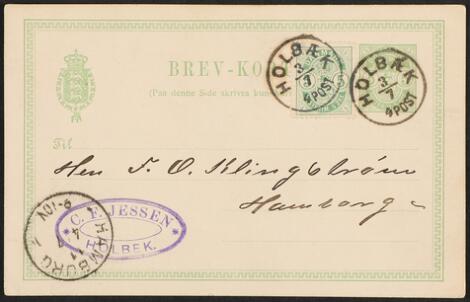 BREV-KO
(Paa denne Side skrives kun
5 5
HOLBÆK
3/7
4 POST
HOLBÆK
3/7
4 POST
Til
Herr F. O. Klingström
Hamborg
C. F. JESSEN
HOLBEK.
HAMBURG